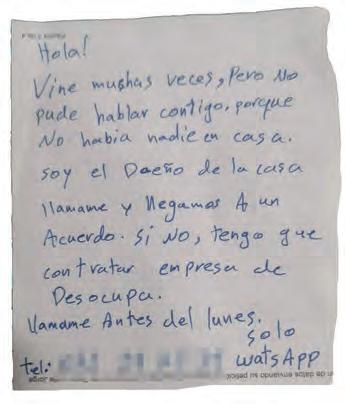 Hola!
Vine muchas veces, Pero No
pude hablar contigo, porque
No habia nadie en casa.
soy el Daeño de la casa
llamame y llegamos A un
Acuerdo. Si No, tengo que
contratar empresa de
Desocupa.
llamame Antes del lunes.
solo
tel: watsApp